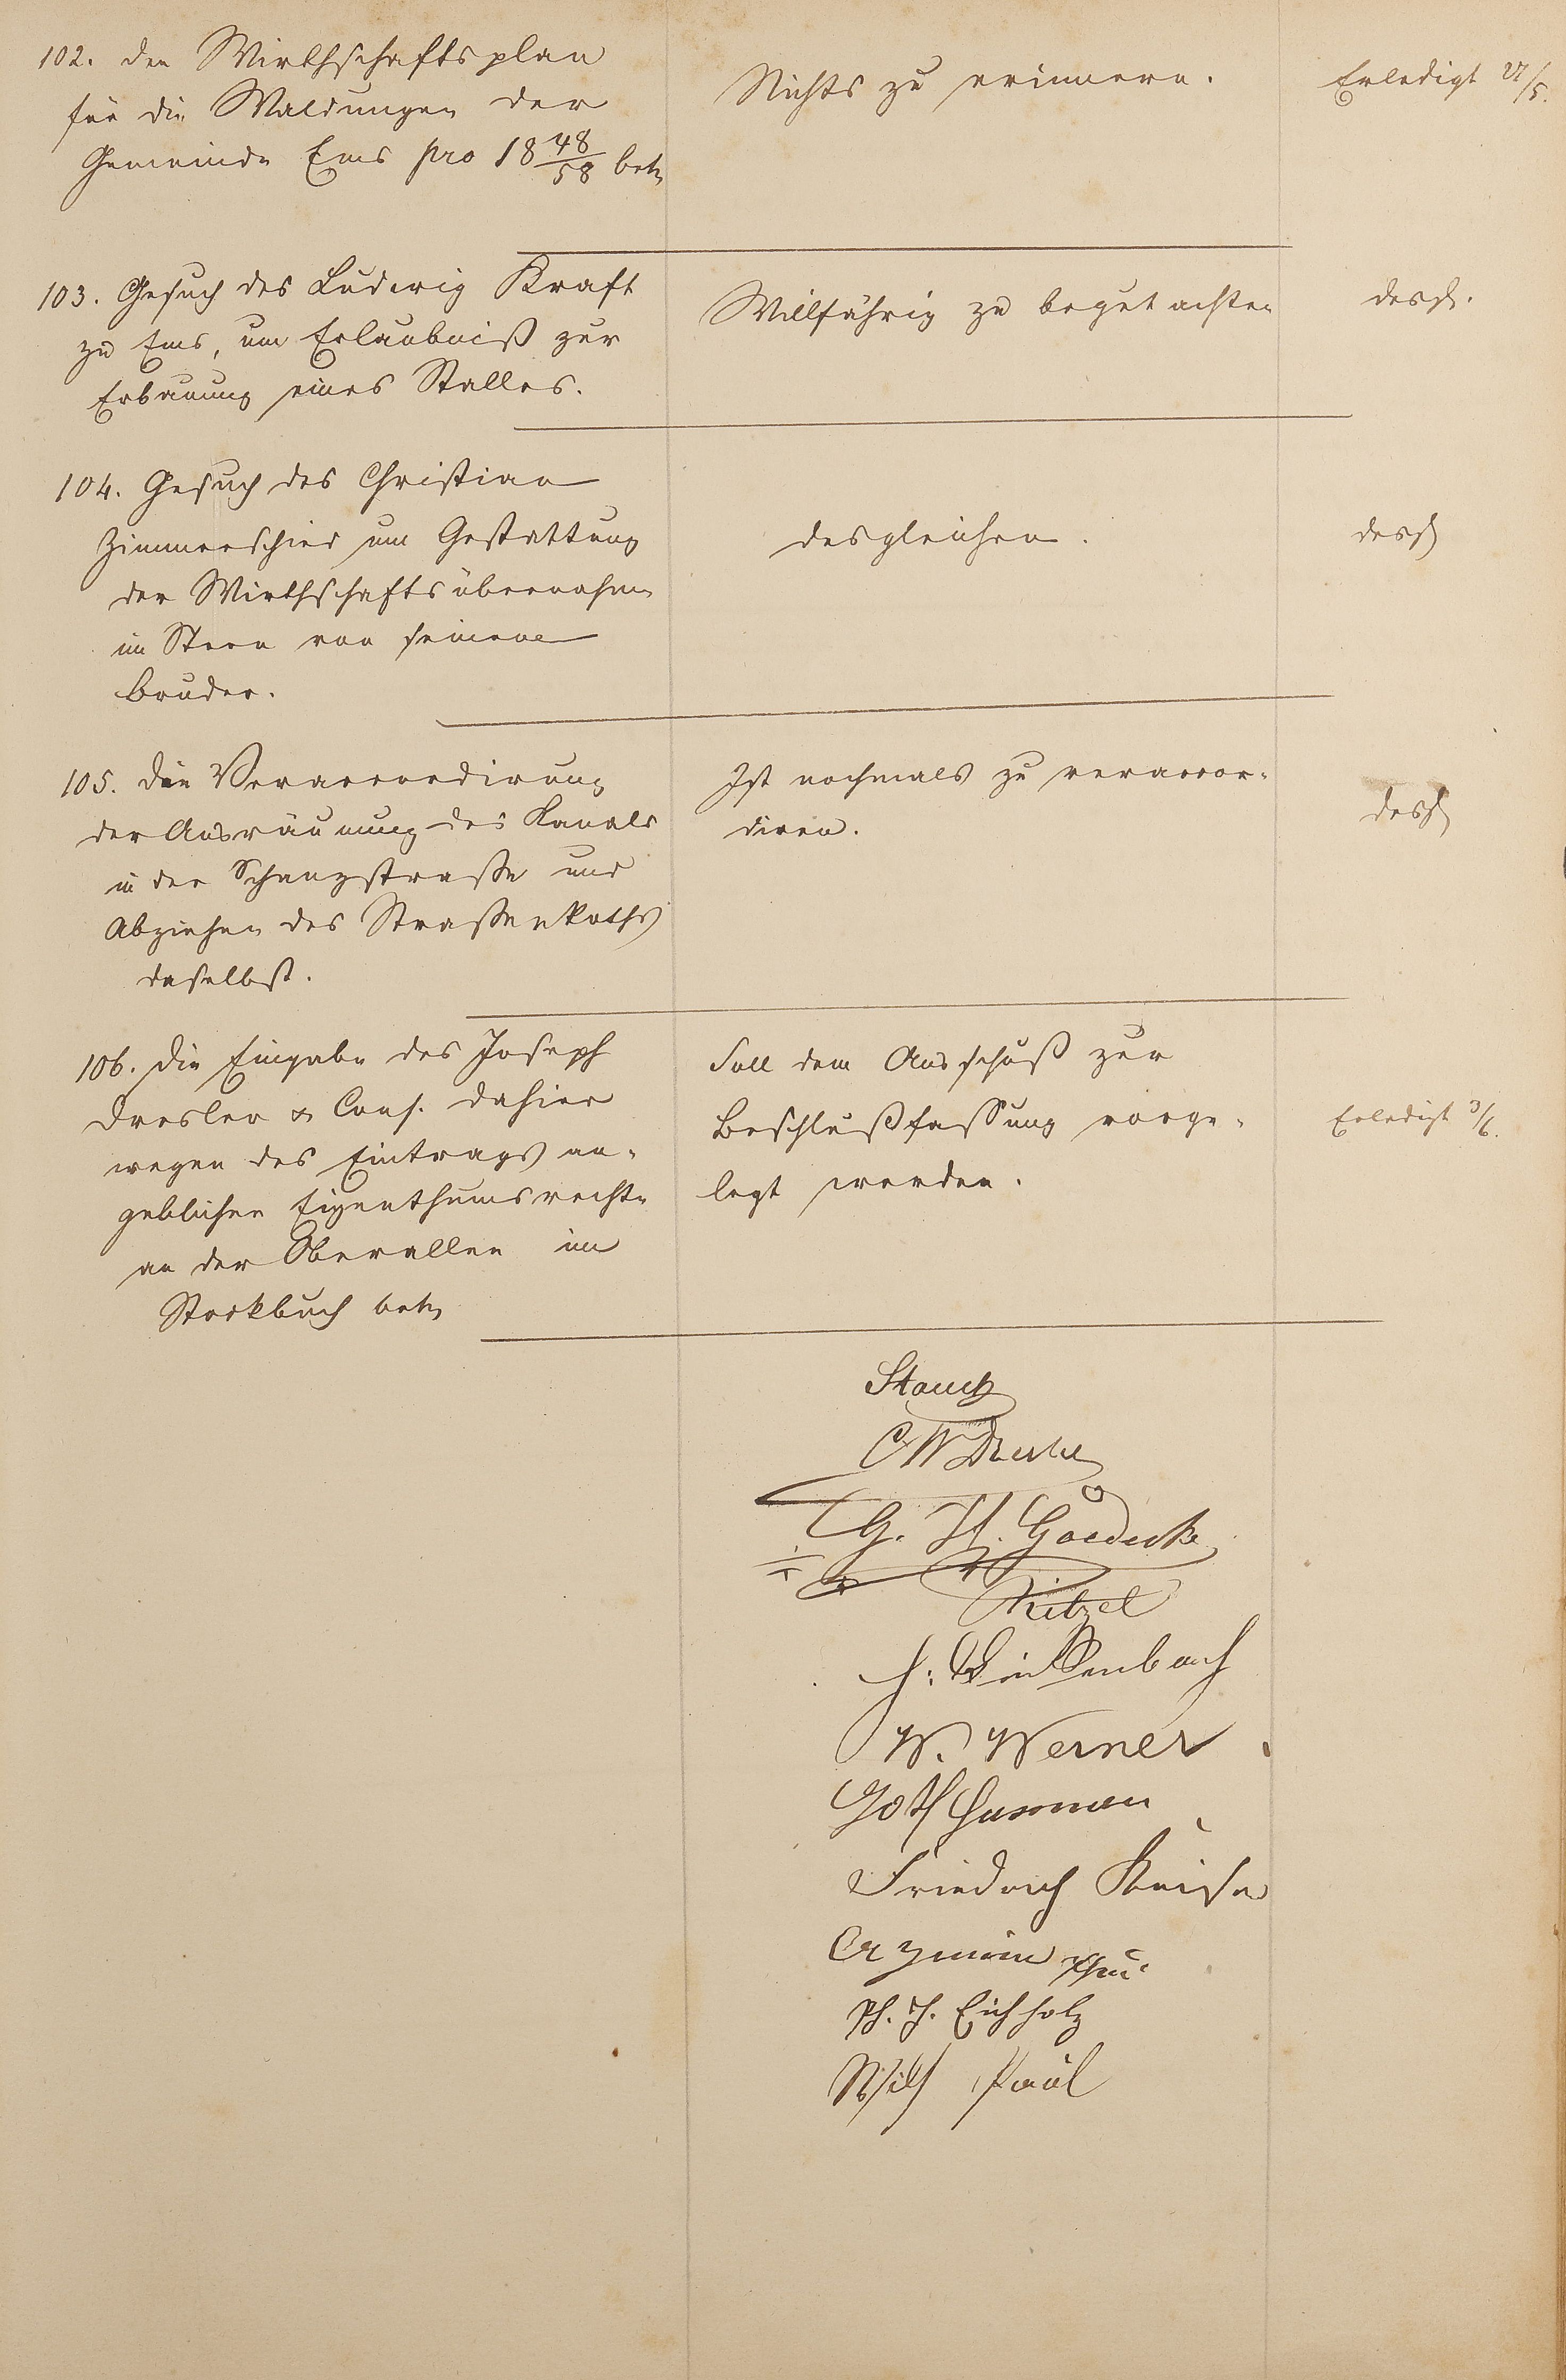 102. den Wirthschaftsplan
für die Waldungen der
Gemeinde Ems pro 18 48/58 betr.
Nichts zu erinnern.
Erledigt 27/5.
103. Gesuch des Ludwig Kraft
zu Ems, um Erlaubniß zur
Erbauung eines Stalles.
Willfährig zu begutachten
desgl.
104. Gesuch des Christian
Zimmerschied um Gestattung
der Wirthschaftsübernahme
im Stern von seinem
Bruder.
desgleichen.
desgl
105. die Veraccordirung
der Ausräumung des Kanals
in der Schanzstraße und
Abziehen des Straßenkoths
daselbst.
Ist nochmals zu veraccor-
diren.
desgl
106. die Eingabe des Joseph
Dresler & Cons. dahier
wegen des Eintrags an-
geblicher Eigenthumsrechte
an der Oberallee im
Stockbuch betr.
Soll dem Ausschuß zur
Beschlußfassung vorge-
legt werden.
Erledigt 3/6.
C W
G. H. Goedecke
Ritzel
W. Werner
Gott Hasman
Friedrich Kaiser
Ph. H. Eichholz
Wilh Paul